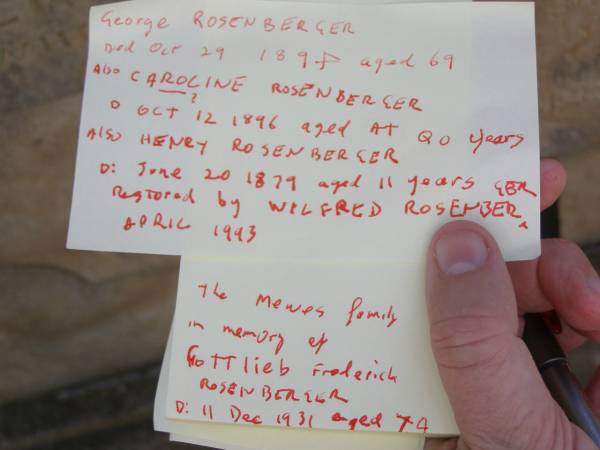 George ROSENBERGER
Died Oct 29 189 aged 69
Also CAROLINE ROSENBERGER
?
D OCT 12 1896 aged AT 20 years
Also HENRY ROSENBERGER
D: June 20 1879 aged 11 years
Restored by WILFRED ROSENBERGER
APRIL 1993
The Mewes family
in memory of
GOTTlieb Frederick
ROSENBERGER
D: 11 Dec 1931 aged 74